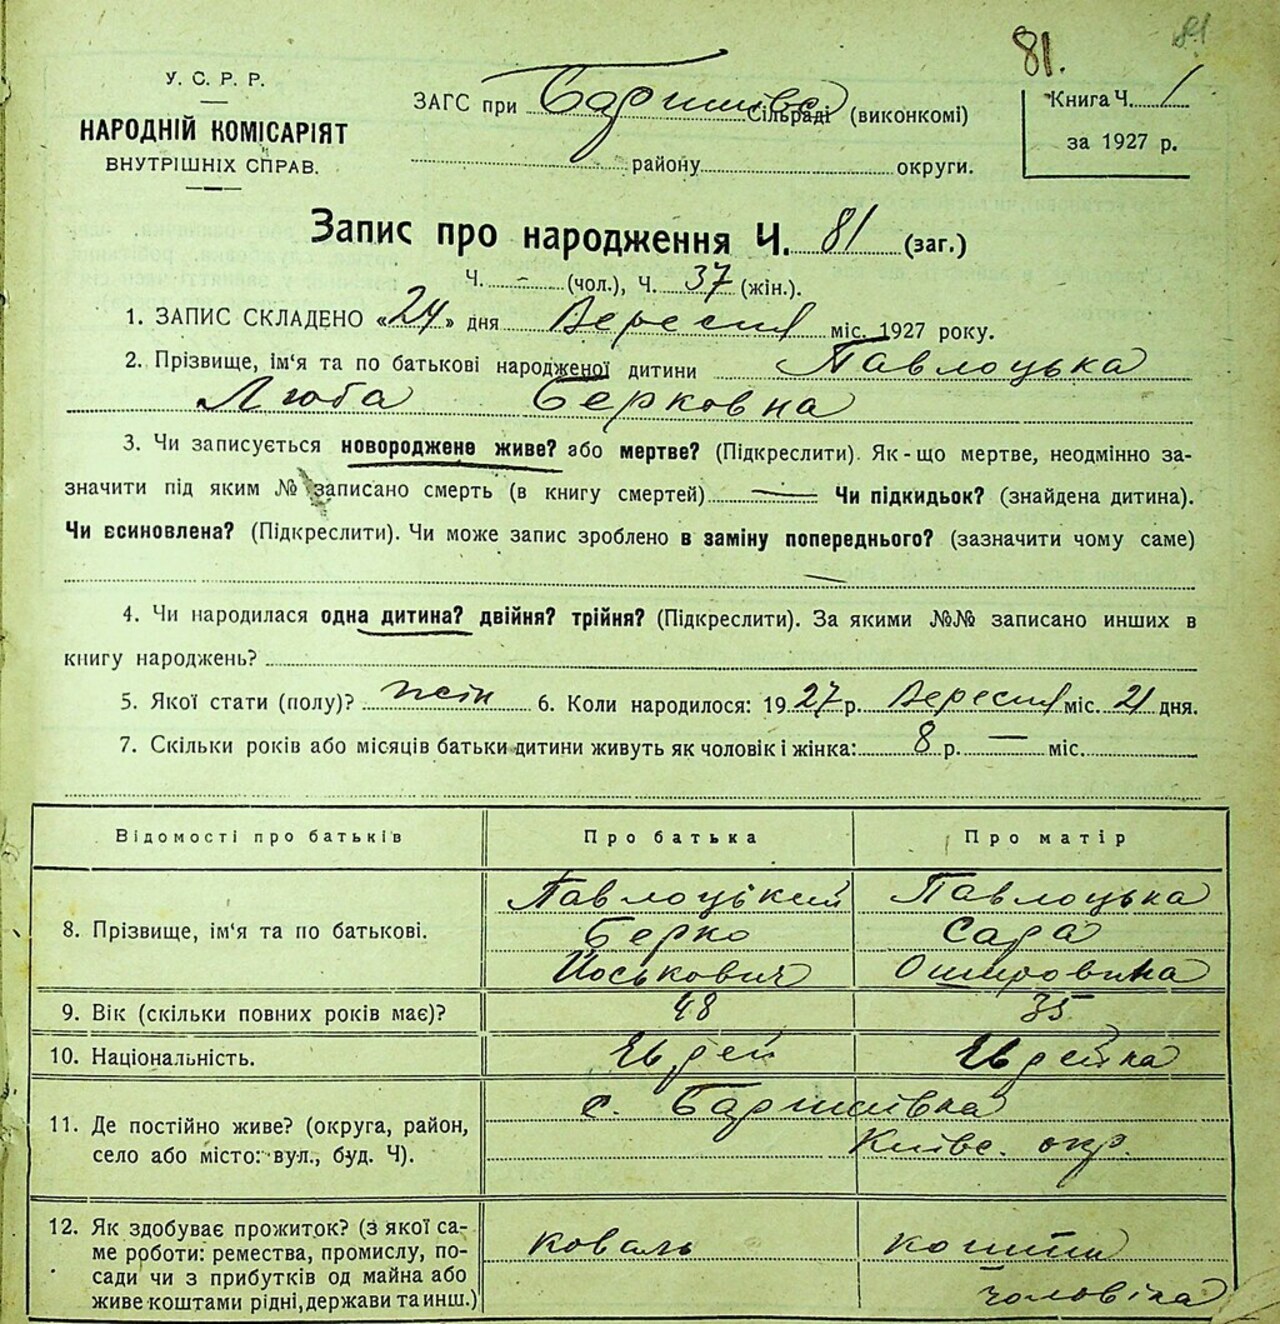 81.
81
У. С. Р. Р.
НАРОДНІЙ КОМІСАРІЯТ
ВНУТРІШНІХ СПРАВ.
ЗАГС при Баришівс Сільраді (виконкомі)
району округи.
Книга Ч. 1
за 1927 р.
Запис про народження Ч. 81 (заг.)
Ч. - (чол.), Ч. 37 (жін.).
1. ЗАПИС СКЛАДЕНО «24» дня Вересня міс. 1927 року.
2. Прізвище, ім‘я та по батькові народженої дитини Павлоцька
Люба Берковна
3. Чи записується новороджене живе? або мертве? (Підкреслити). Як-що мертве, неодмінно за-
значити під яким № записано смерть (в книгу смертей) — Чи підкидьок? (знайдена дитина).
Чи всиновлена? (Підкреслити). Чи може запис зроблено в заміну попереднього? (зазначити чому саме)
—
4. Чи народилася одна дитина? двійня? трійня? (Підкреслити). За якими №№ записано инших в
книгу народжень?
5. Якої стати (полу)? жін 6. Коли народилося: 1927 р. Вересня міс. 21 дня.
7. Скільки років або місяців батьки дитини живуть як чоловік і жінка: 8 р. — міс.
Відомості про батьків Про батька Про матір
8. Прізвище, ім‘я та по батькові.
Павлоцький Павлоцька
Берко Сара
Йоськович
9. Вік (скільки повних років має)? 48 35
10. Національність. Єврей Єврейка
11. Де постійно живе? (округа, район,
село або місто: вул., буд. Ч).
с. Баришівка
Київс. окр.
12. Як здобуває прожиток? (з якої са-
ме роботи: ремества, промислу, по-
сади чи з прибутків од майна або
живе коштами рідні, держави та инш.)
коваль кошти
чоловіка